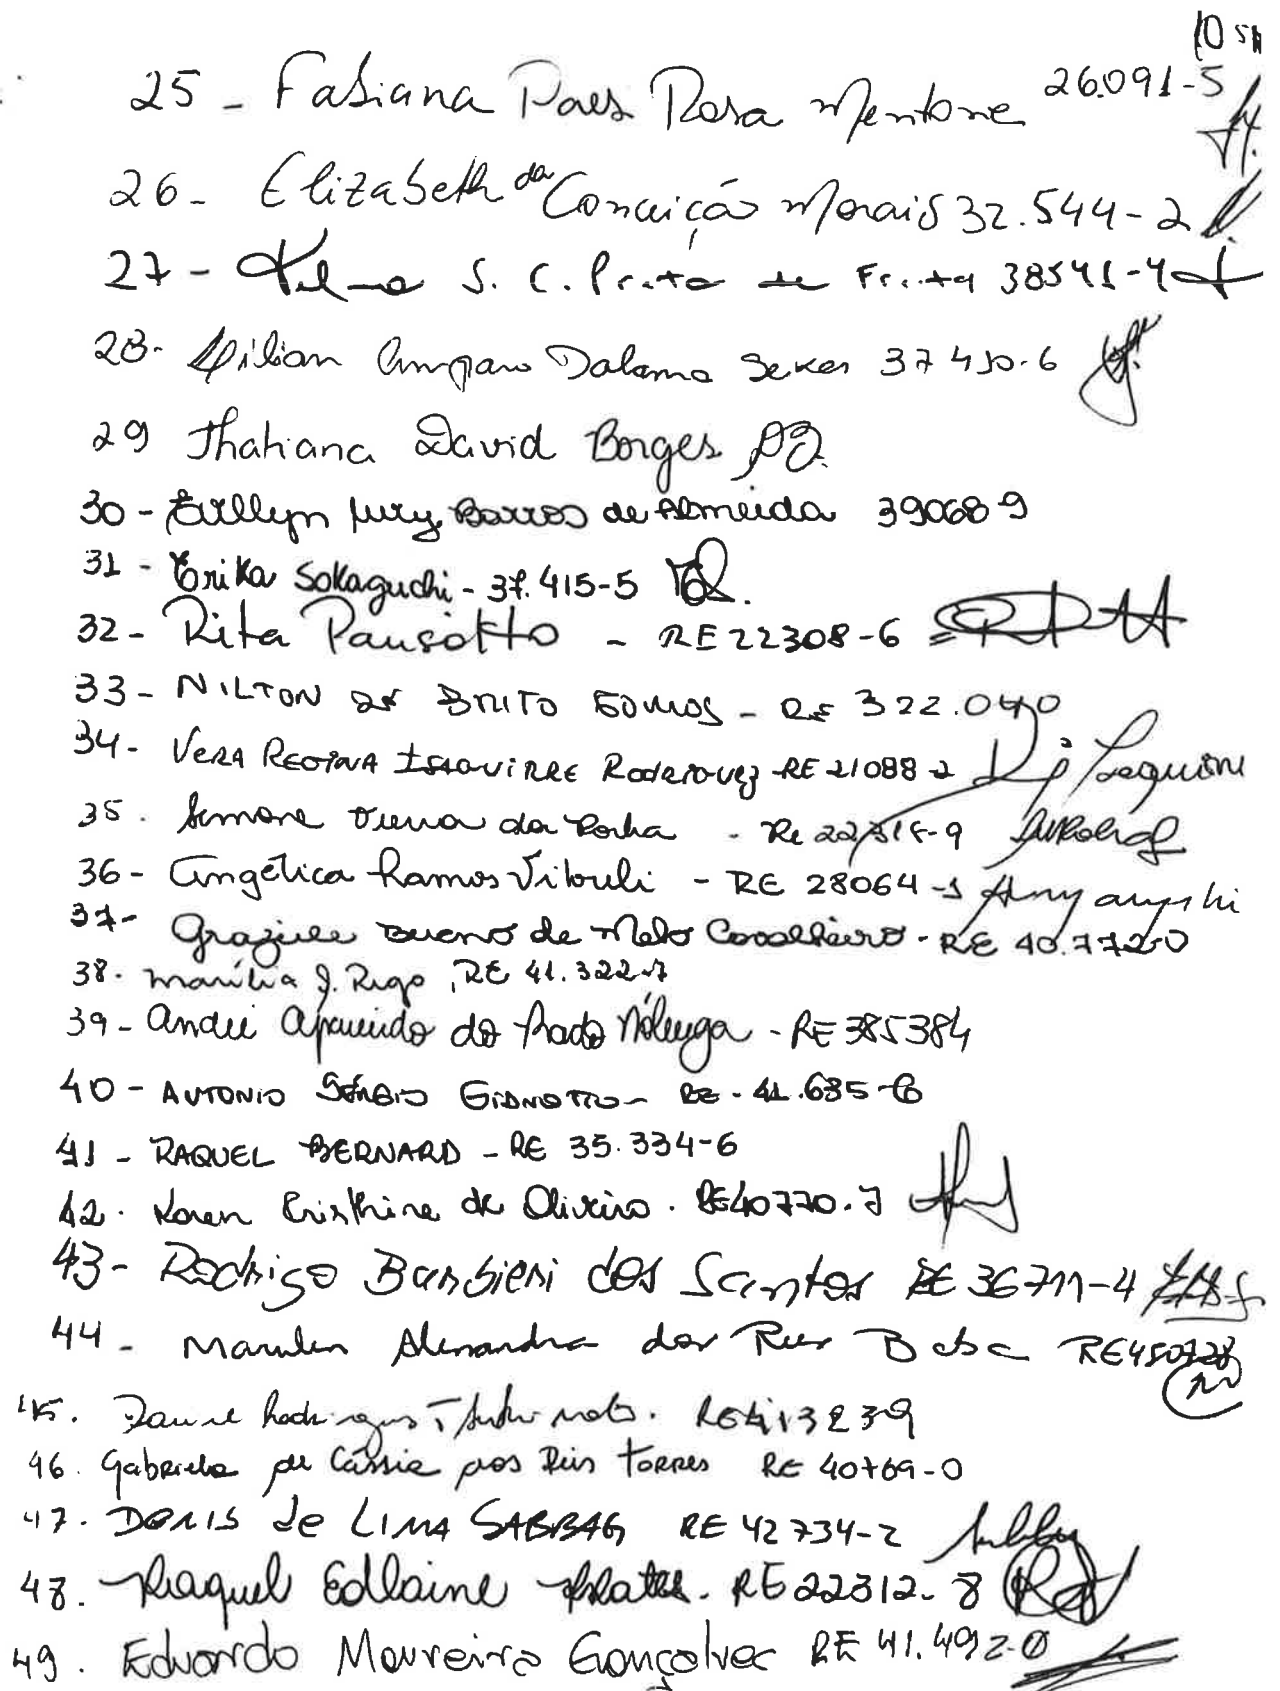 25 - Fabiana Paes Rosa Mentone 26.091-5
26 - Elizabeth da Conceição Morais 32.544-2
27 - Telma S. C. Prata de Freita 38541-4
28 - Lilian Amparo Dalama 37450-6
29 Thatiana David Borges
30 - Barros de Almeida 390689
31 - Erika Sakaguchi - 37.415-5
32 - Rita Pansotto - RE 22308-6
33 - NILTON DE BRITO GOMES - RE 322.040
34 - VERA REGINA ISAQUIRRE RODRIGUEZ - RE 21088-2
35. Simone da Rocha - RE 22318-9
36 - Angélica Ramos Vitouli - RE 28064-1
37 - Graziele Bueno de Melo Cavalheiro - RE 40.772-0
38. Marília J. Rigo, RE 41.322-7
39 - André Aparecido do Prado Nóbrega - RE 385384
40 - ANTONIO SÉRGIO GIANOTTO - RE - 41.635-6
41 - RAQUEL BERNARD - RE 35.334-6
42. Karen Cristhine de Oliveira. RE 40770.7
43 - Rodrigo Barbieri dos Santos RE 36711-4
44 - Alexandra dos Reis RE
45. Rodrigues RE 413239
46. Gabriela de Cássia dos Reis TORRES RE 40769-0
47. DENIS de LIMA SABBAG RE 42734-2
48. Raquel Edlaine Prates. RE 22312-8
49. Eduardo Moureira Gonçalves RE 41.492-0